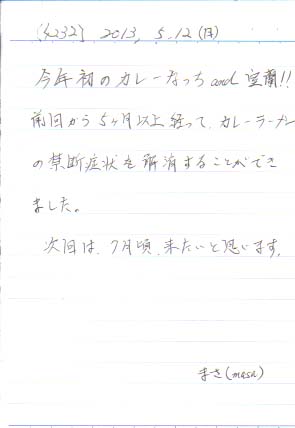 (4232) 2013, 5.12 (月)
今年初のカレーなっち and 室蘭!!
前回から5ヶ月以上経って、カレーラーメン
の禁断症状を解消することができ
ました。
次回は、7月頃、来たいと思います。
まさ(masa)